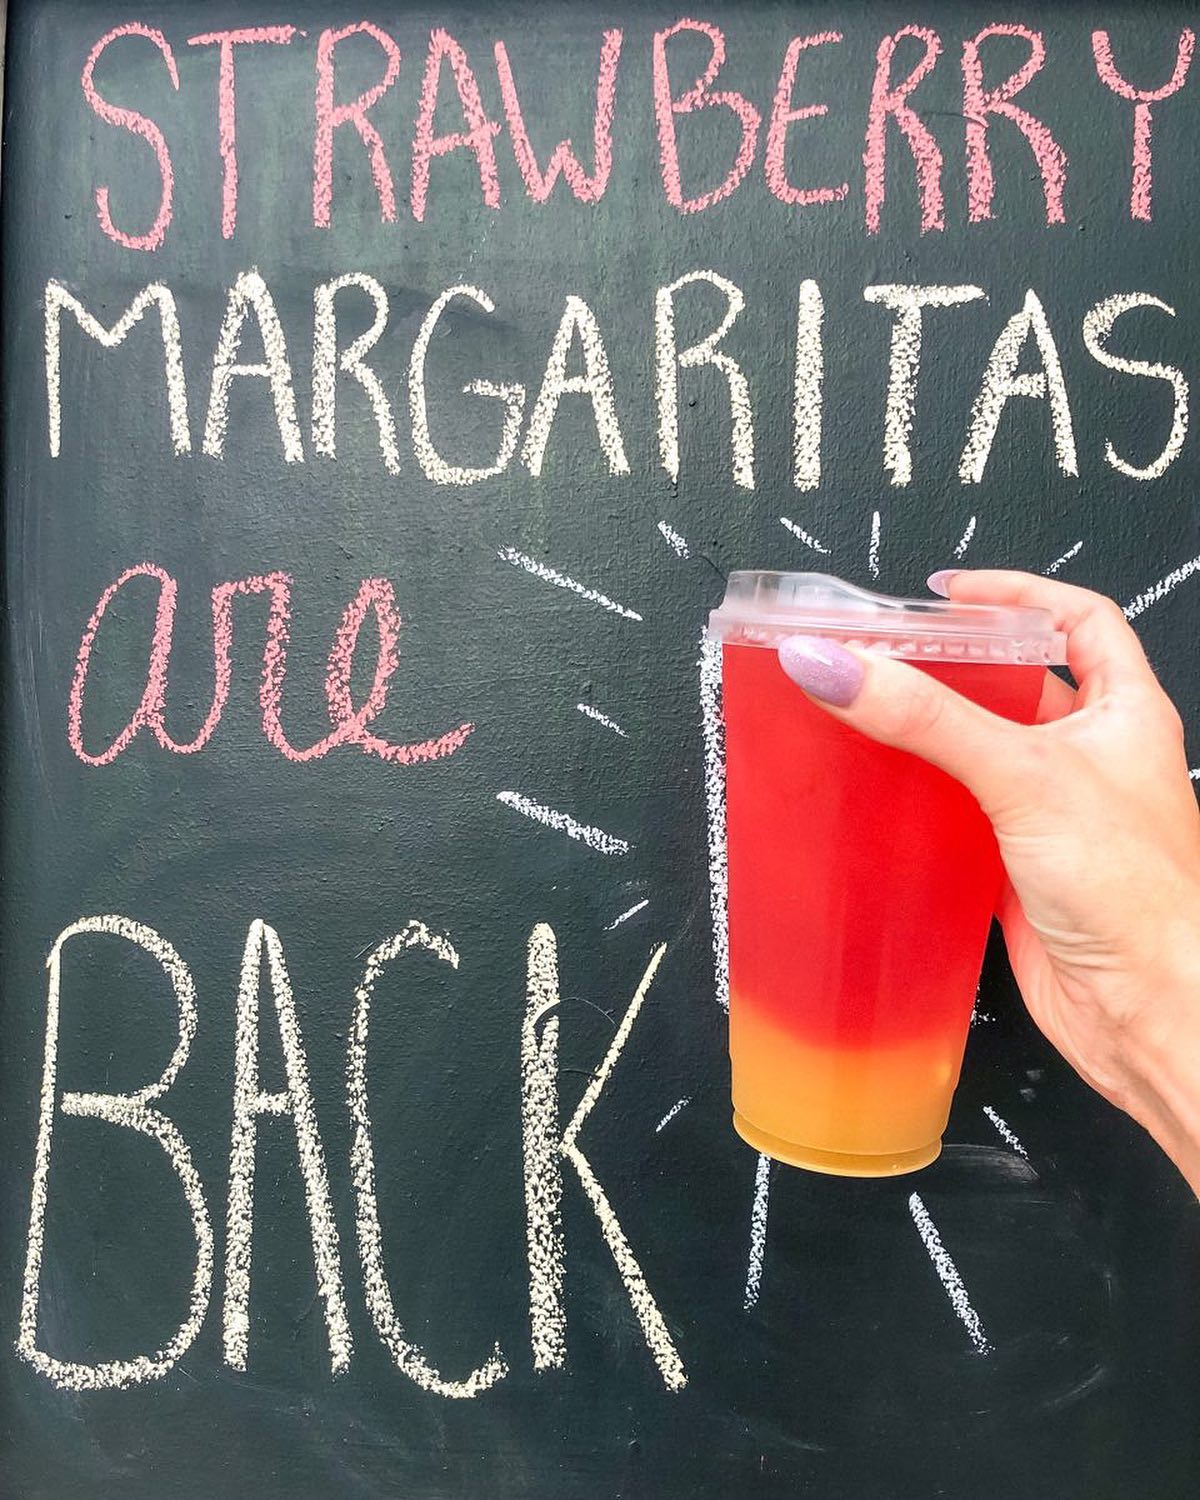 STRAWBERRY
MARGARITAS
are
BACK